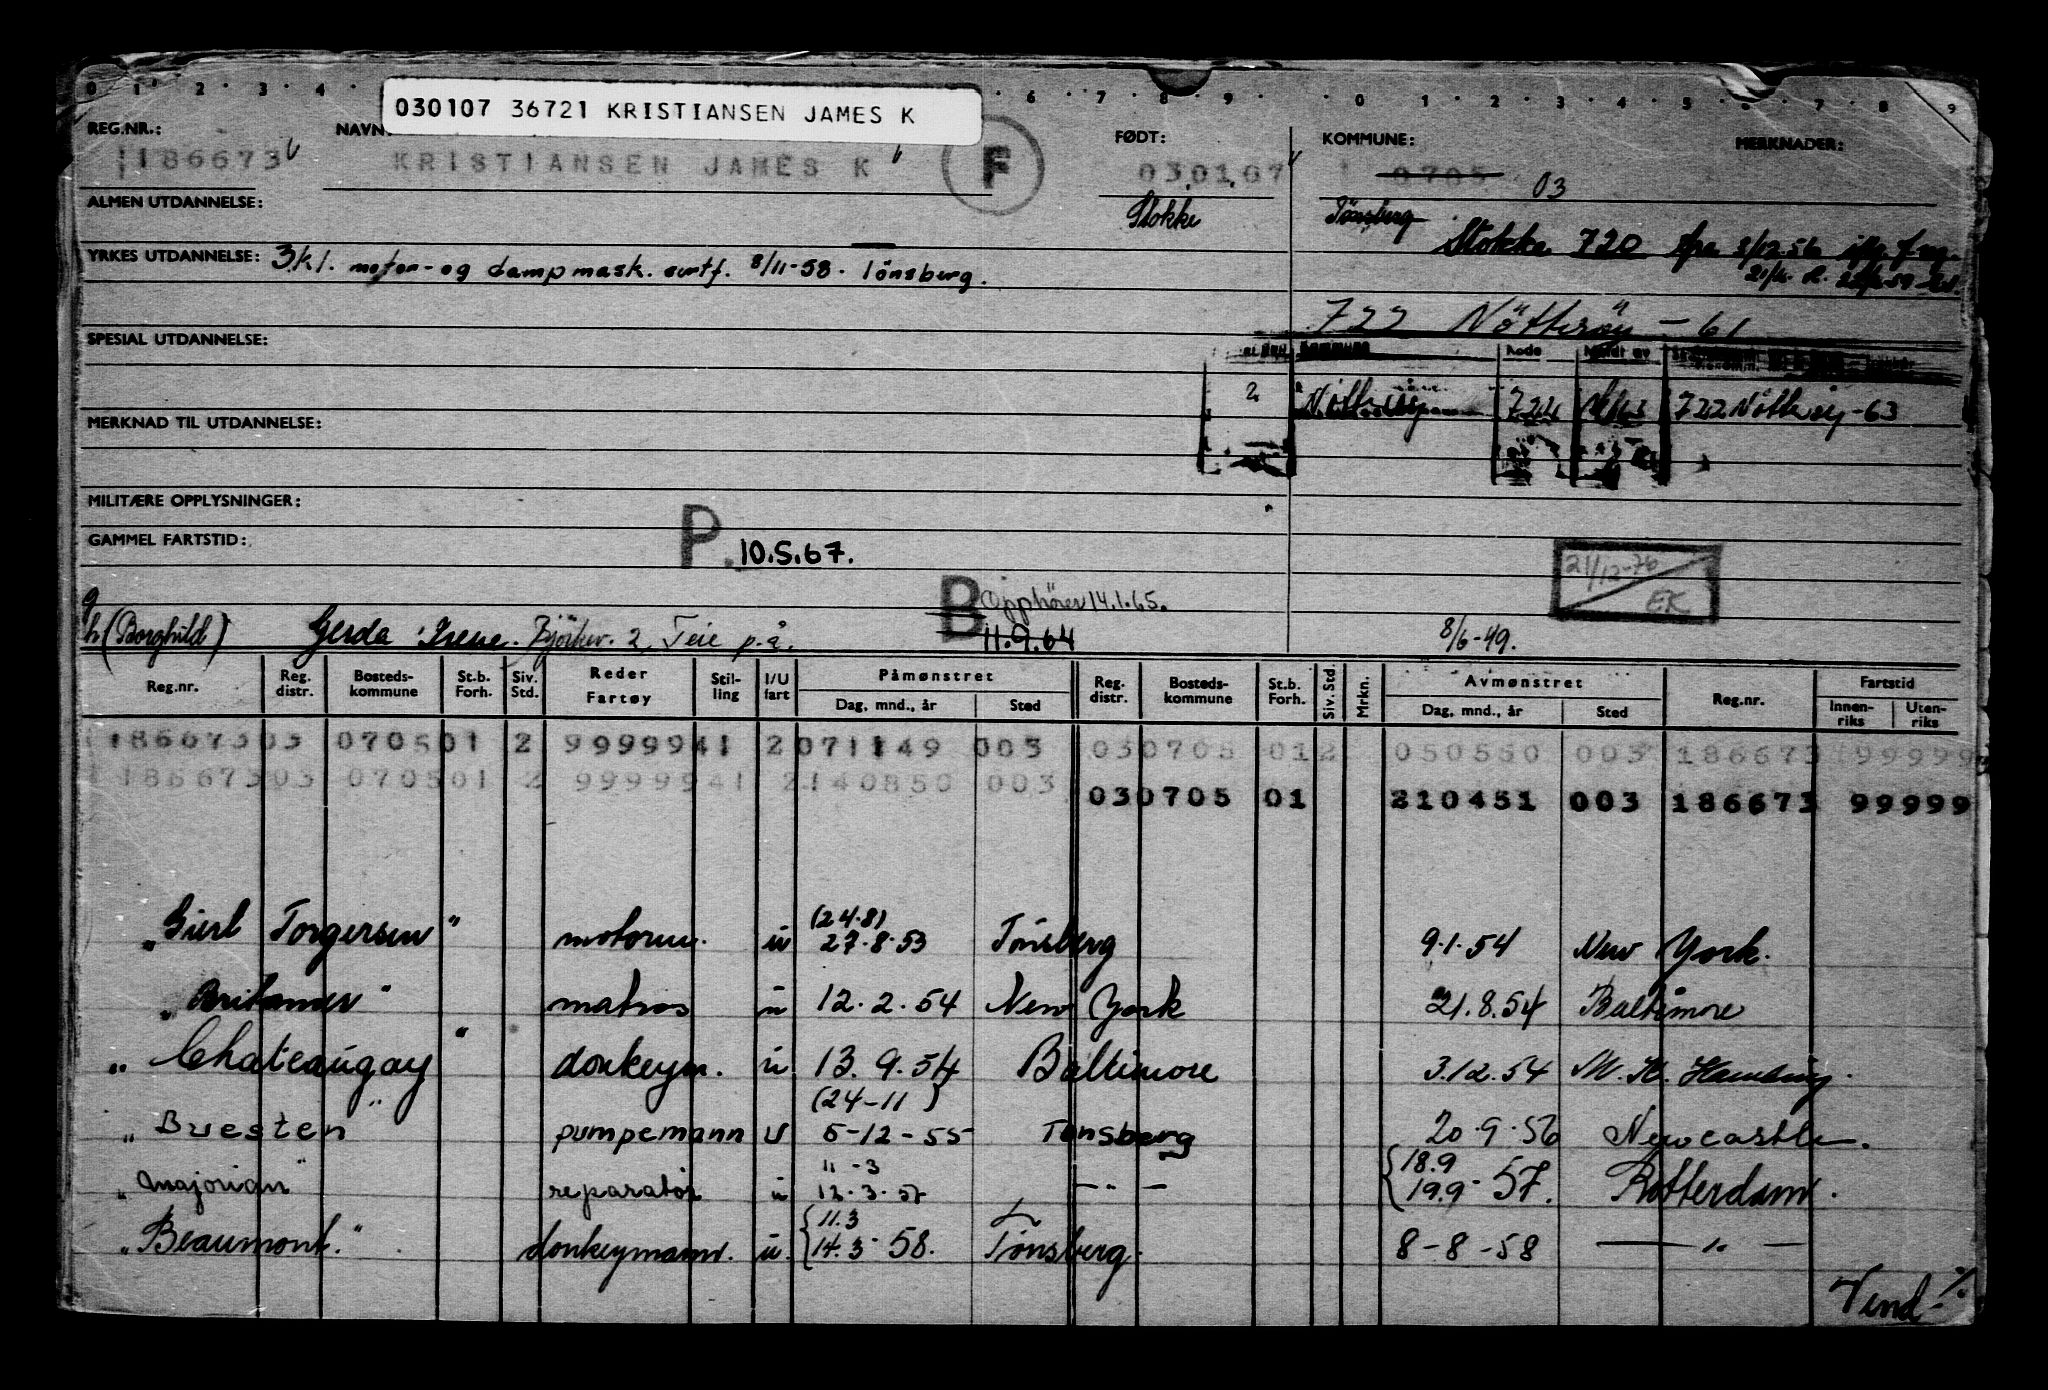 0 1 2 3 4 6 7 8 9 0 1 2 3 4 5 6 7 8 9
030107 36721 KRISTIANSEN JAMES K
REG.NR.: NAVN: FØDT: KOMMUNE: MERKNADER:
186673 KRISTIANSEN JAMES K F 030107 0705 03
ALMEN UTDANNELSE: Stokke Tönsberg
Stokke 720 fra 3/12.56
YRKES UTDANNELSE: 3.kl. motor- og dampmask. sertf. 8/11-58. Tönsberg.
722 Nötteröy - 61
SPESIAL UTDANNELSE:
Kode
2 Nötteröy 722 722 Nötteröy-63
MERKNAD TIL UTDANNELSE:
MILITÆRE OPPLYSNINGER:
GAMMEL FARTSTID:
P. 10.5.67.
21/12-76
EK
B Opphörer 14.1.65.
11.9.64
g
h (Borghild) Gerda Irene. 2, Teie p.å. 8/6-49.
Reg.nr. Reg. distr. Bosteds-kommune St.b. Forh. Siv. Std. Reder Fartøy Stil-ling I/U fart Påmønstret Dag, mnd., år Sted Reg. distr. Bosteds-kommune St.b. Forh. Siv. Std. Mrkn. Avmønstret Dag, mnd., år Sted Reg.nr. Fartstid Innen-riks Uten-riks
186673 03 0705 01 2 9999941 2 071149 003 03 0705 01 2 050550 003 186673 99999
186673 03 0705 01 2 9999941 2 140850 003
03 0705 01 210451 003 186673 99999
(24.8)
"Sierl Torgersen" motorm. u 27.8.53 Tönsberg 9.1.54 New York.
matros u 12.2.54 New York 21.8.54 Baltimore
"Chateaugay" donkeym. u. 13.9.54 Baltimore 3.12.54
(24-11)
"Buesten" pumpemann u 5-12-55 Tønsberg 20.9.56 Newcastle.
11-3 18.9
"Majorian" reparatör u 12.3.57 -"- 19.9-57. Rotterdam.
11.3
"Beaumont." donkeymann. u. 14.3-58. Tønsberg. 8-8-58 -"-
Vend %.